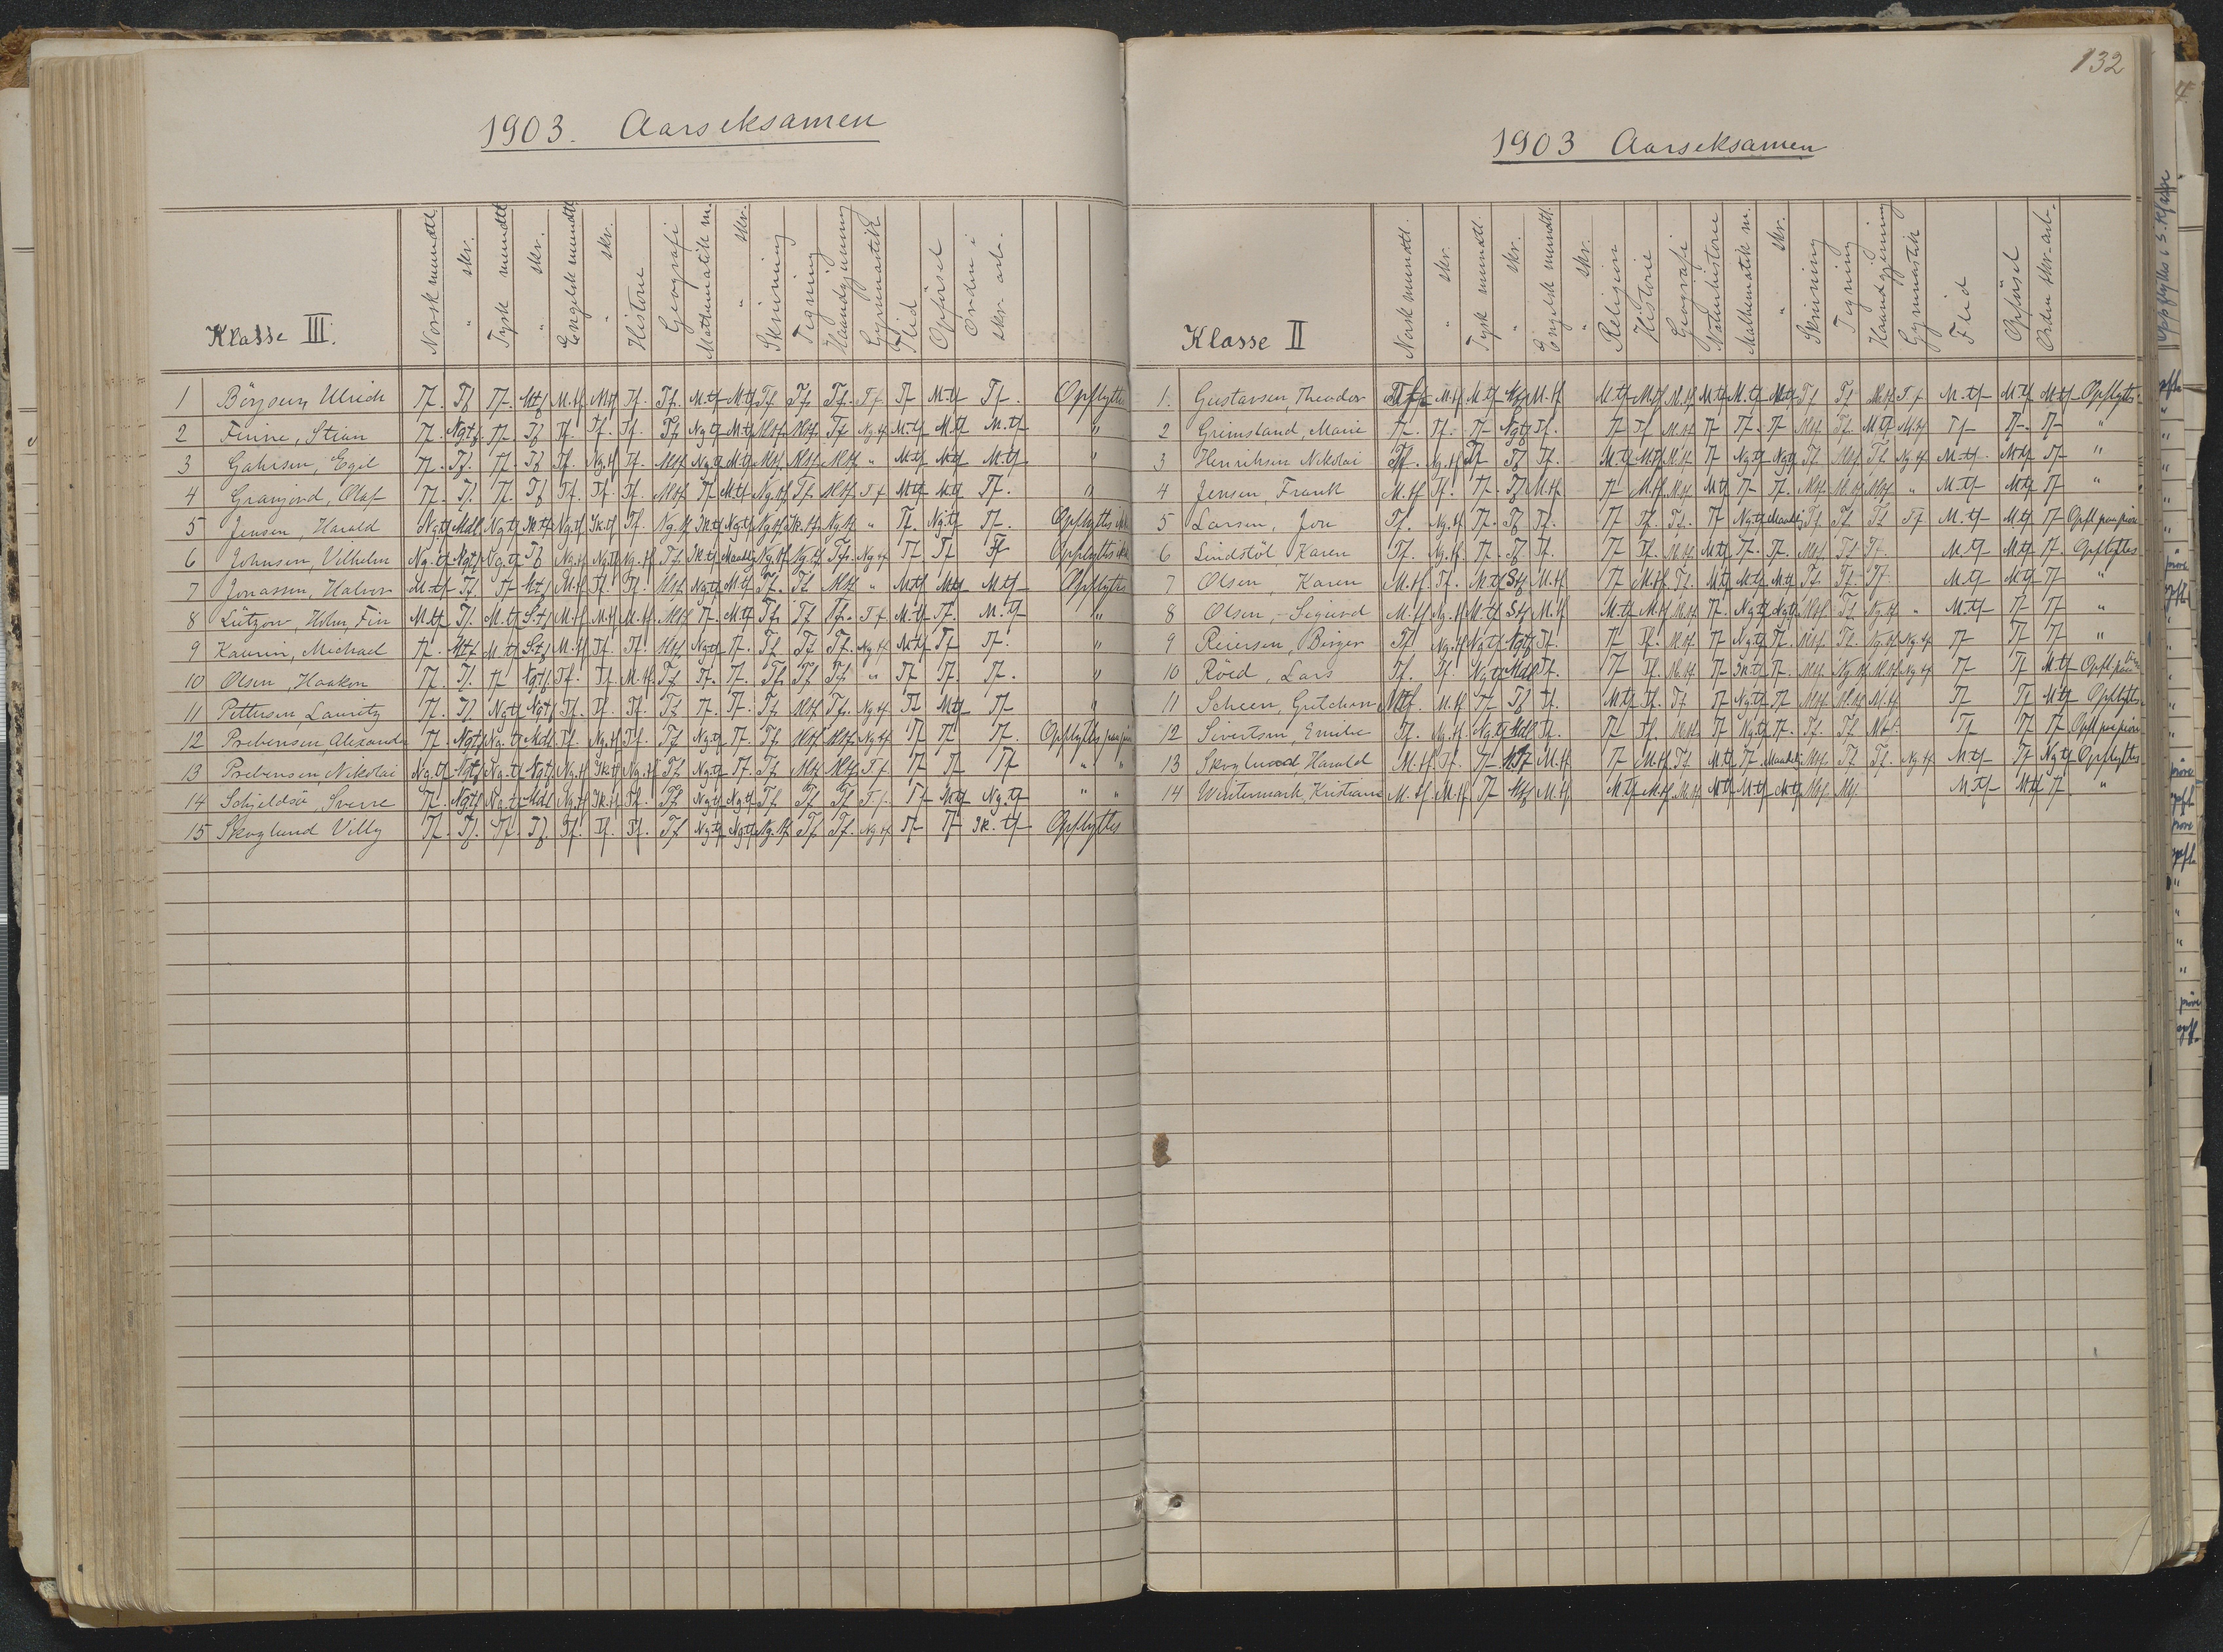 1903. Aarseksamen
Klasse III.
Norsk mundtl.
" skr.
Tysk mundtl
" skr.
Engelsk mundtl
" skr.
Historie
Geografi
Mathematik m.
" skr.
Skrivning
Tegning
Haandgjerning
Gymnastik
Flid
Opførsel
Orden i skr. arb.
1 Börjesen, Ulrich Tf. Tf. Tf. Mtf. M.tf. Mtf Tf. Tf. M.tf M.tf Tf. Tf. Tf. Tf. Tf M.tf Tf. Opflyttes
2 Finne, Stian Tf. Ngtf. Tf. Tf Tf. Tf. Tf. Tf Ng tf M.tf Mtf. Mtf. Tf Ng tf M.tf M.tf M.tf "
3 Gahrsen, Egil Tf. Tf. Tf. Tf Tf. Ng.tf Tf. Mtf Ng.tf M.tf Mtf. Mtf. Mtf. " M.tf M.tf M.tf "
4 Granjord, Olaf Tf. Tf. Tf. Tf Tf. Tf. Tf. Mtf Tf M.tf Ng.tf Tf. Mtf Tf M.tf M.tf Tf. "
5 Jensen, Harald Ng.tf Mdl. Ng.tf Ik.tf Ng.tf Ik.tf Tf. Ng.tf Ik.tf Ng.tf Ng.tf Ik.tf. Ng.tf " Tf. Ng.tf Tf. Opflyttes ikke
6 Johnsen, Vilhelm Ng.tf Ngtf Ng.tf Tf Ng.tf Ng.tf Ng.tf Tf. Ik.tf Maadelig Ng.tf Ng.tf Tf. Ng tf Tf Tf Tf Opflyttes ikke
7 Jonassen, Halvor M.tf Tf. Tf Mtf. M.tf Tf. Tf. Mtf Ngtf M.tf Tf. Tf. Mtf " M.tf M.tf M.tf Opflyttes
8 Lützow, Holm, Finn M.tf Tf. M.tf S.tf M.tf M.tf M.tf Mtf Tf. M.tf Tf. Tf Tf. Tf M.tf Tf. M.tf "
9 Kaurin, Michael Tf. Mtf. M.tf S.tf M.tf Tf. Tf. Mtf Ngtf Tf. Tf Tf Tf. Ng tf M.tf Tf Tf. "
10 Olsen, Haakon Tf. Tf. Tf Ngtf. Tf. Tf. M.tf. Tf Tf. Tf. Tf. Tf Tf " Tf Tf. Tf. "
11 Pettersen, Lauritz Tf. Tf. Ngtf Ngtf. Tf. Tf. Tf. Tf Tf. Tf. Tf. Mtf Tf. Ng tf Tf Mtf Tf "
12 Prebensen, Alexander Tf. Ngtf Ng.tf Mdl. Tf. Ng.tf Tf. Tf Ng.tf Tf. Tf. Mtf Mtf Ng tf Tf Tf Tf. Opflyttes paa prøve
13 Prebensen, Nikolai Ng.tf Ngtf Ng.tf Ngtf. Ng.tf Ik.tf Ng.tf Tf Ng.tf Tf. Tf Mtf Mtf. Tf Tf Tf Tf " "
14 Schjeldsö, Sverre Tf. Ngtf Ng.tf Mdl Ng.tf Ik.tf Tf. Tf Ngtf Ng.tf Tf Tf Tf Tf. Tf M.tf Ng.tf " "
15 Skoglund Villy Tf. Tf. Tf. Tf. Tf. Tf. Tf. Tf Ng.tf Ng.tf Ng.tf Tf Tf. Ng.tf Tf Tf Ik. tf Opflyttes
132
1903 Aarseksamen
Klasse II
Norsk mundtl.
" skr.
Tysk mundtl.
" skr.
Engelsk mundtl.
" skr.
Religion
Historie
Geografi
Naturhistorie
Mathematik m.
" skr.
Skrivning
Tegning
Haandgjerning
Gymnastik
Flid
Opførsel
Orden skr.arb.
1. Gustavsen, Theodor Tf. M.tf M.tf Mtf M.tf M.tf M.tf M.tf M.tf M.tf M.tf Tf Tf Mtf Tf M.tf M.tf M.tf Opflyttes
2 Grimsland, Marie Tf. Tf. Tf Ngtf Tf. Tf Tf M.tf Tf Tf. Tf Mtf. Tf. M.tf M.tf Tf Tf. Tf "
3 Henriksen Nikolai Tf. Ng.tf Tf Tf Tf. M.tf M.tf M.tf Tf Ng.tf Ng.tf Tf. Mtf Tf. Ng tf M.tf M.tf Tf "
4 Jensen, Frank M.tf Tf. Tf. Tf M.tf Tf M.tf M.tf M.tf Tf Tf. Mtf. M.tf Mtf " M.tf M.tf Tf "
5 Larsen, Jon Tf. Ng.tf Tf. Tf Tf. Tf Tf. Tf. Tf Ng.tf Maadelig Tf. Tf. Tf Tf M.tf M.tf Tf Opfl. paa prøve
6 Lindstöl, Karen Tf. Ng.tf. Tf. Tf Tf. Tf Tf. M.tf M.tf Tf. Tf. Mtf. Tf Tf. M.tf M.tf Tf. Opflyttes
7 Olsen, Karen M.tf. Tf. M.tf Stf. M.tf Tf M.tf Tf. M.tf M.tf M.tf Tf. Tf. Tf. M.tf M.tf Tf "
8 Olsen, Sigurd M.tf Ng.tf M.tf Stf M.tf M.tf M.tf M.tf Tf. Ng.tf Ng.tf Mtf. Tf Ng.tf " M.tf Tf Tf "
9 Reiersen, Birger Tf. Ng.tf Ng.tf Ngtf Tf. Tf Tf. M.tf Tf Ng.tf Tf. Mtf. Tf. Ng.tf Ng tf Tf Tf Tf "
10 Röed, Lars Tf. Tf. Ng.tf Mdl. Tf. Tf Tf. M.tf Tf Ik.tf Tf. Mtf Ng.tf M.tf Ng tf Tf Tf M.tf Opfl. paa prøve
11 Scheen, Gretchen Mtf. M.tf Tf Tf Tf. M.tf Tf. Tf Tf Ng.tf Tf Mtf M.tf M.tf Tf Tf M.tf Opflyttes
12 Sivertsen, Emilie Tf. Ng.tf. Ng.tf Mdl. Tf. Tf Tf. M.tf Tf Ng.tf Tf. Tf. Tf. Mtf. Tf Tf Tf Opfl. paa prøve
13 Skoglund, Harald M.tf Tf. Tf Tf M.tf Tf M.tf Tf M.tf Tf Maadelig Mtf Tf Tf. Ng tf M.tf Tf Ng.tf Opflyttes
14 Wintermark, Kristiane M.tf. M.tf. Tf Mtf M.tf. M.tf M.tf M.tf M.tf M.tf M.tf Mtf Mtf M.tf M.tf Tf. "
Opflyttes i 5. Klasse